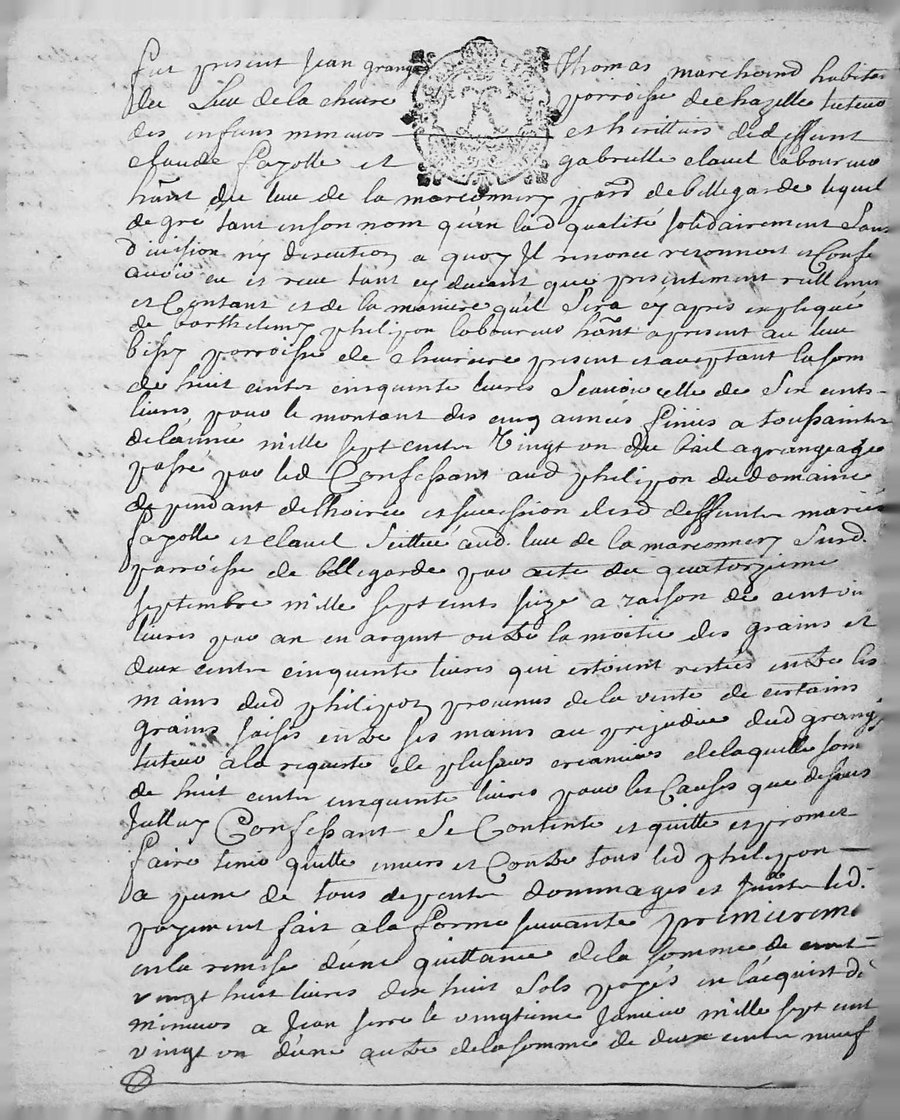 fut present Jean grange Thomas marchand habitan
du Lieu de la chiure parroisse de chazelle tuteur
des enfans mineurs et heritiers de deffunt
claude fayolle et gabrielle clauel laboureur
hãnt du lieu de la marconnery parð de bellegarde lequel
de gré tant en son nom qu'en lad qualité solidairement sans
division ny discution a quoy Il renonce reconnoit et Confe
avoir eu et receu tant cy devant que presentement reellemen
et Contant et de la maniere qu'il sera cy apres expliqué
de barthelemy philipon laboureur hãnt a present au lieu
bissy parroisse de chevriere present et aceptant la som
de huit cents cinquante livres Scavoir celle de Six cents
livres pour le montant des cinq années finies a toussaints
de lannée mille sept cents Vingt un du bail a grangeage
passé par led Confessant aud philipon du domaine
dependant de lhoirie et succession desd deffunts mariés
fayolle et clauel Scittué aud. lieu de la marconnery Surd.
parroisse de bellegarde par acte du quatorzieme
septembre mille sept cents seize a raison de cent vin
livres par an en argent outre la moitié des grains et
deux cents cinquante livres qui estoient restées entre les
mains dud philipon provenus de la vente de certains
grains saisis entre ses mains au prejudice dud grange
tuteur a la requeste de plusieurs creanciers de laquelle som
de huit cents cinquante livres pour les Causes que dessus
Jelluy Confessant Se Contente et quitte et promet
faire tenir quitte envers et Contre tous led philipon
a peine de tous depents dommages et Jnterests led.
payement fait a la forme suivante premierem
en la remise d'une quittance de la somme de cent
vingt huit livres dix huit sols payés en lacquist de
mineurs a Jean serre le vingtieme Janvier mille sept cent
vingt un d'une autre de la somme de deux cents neuf